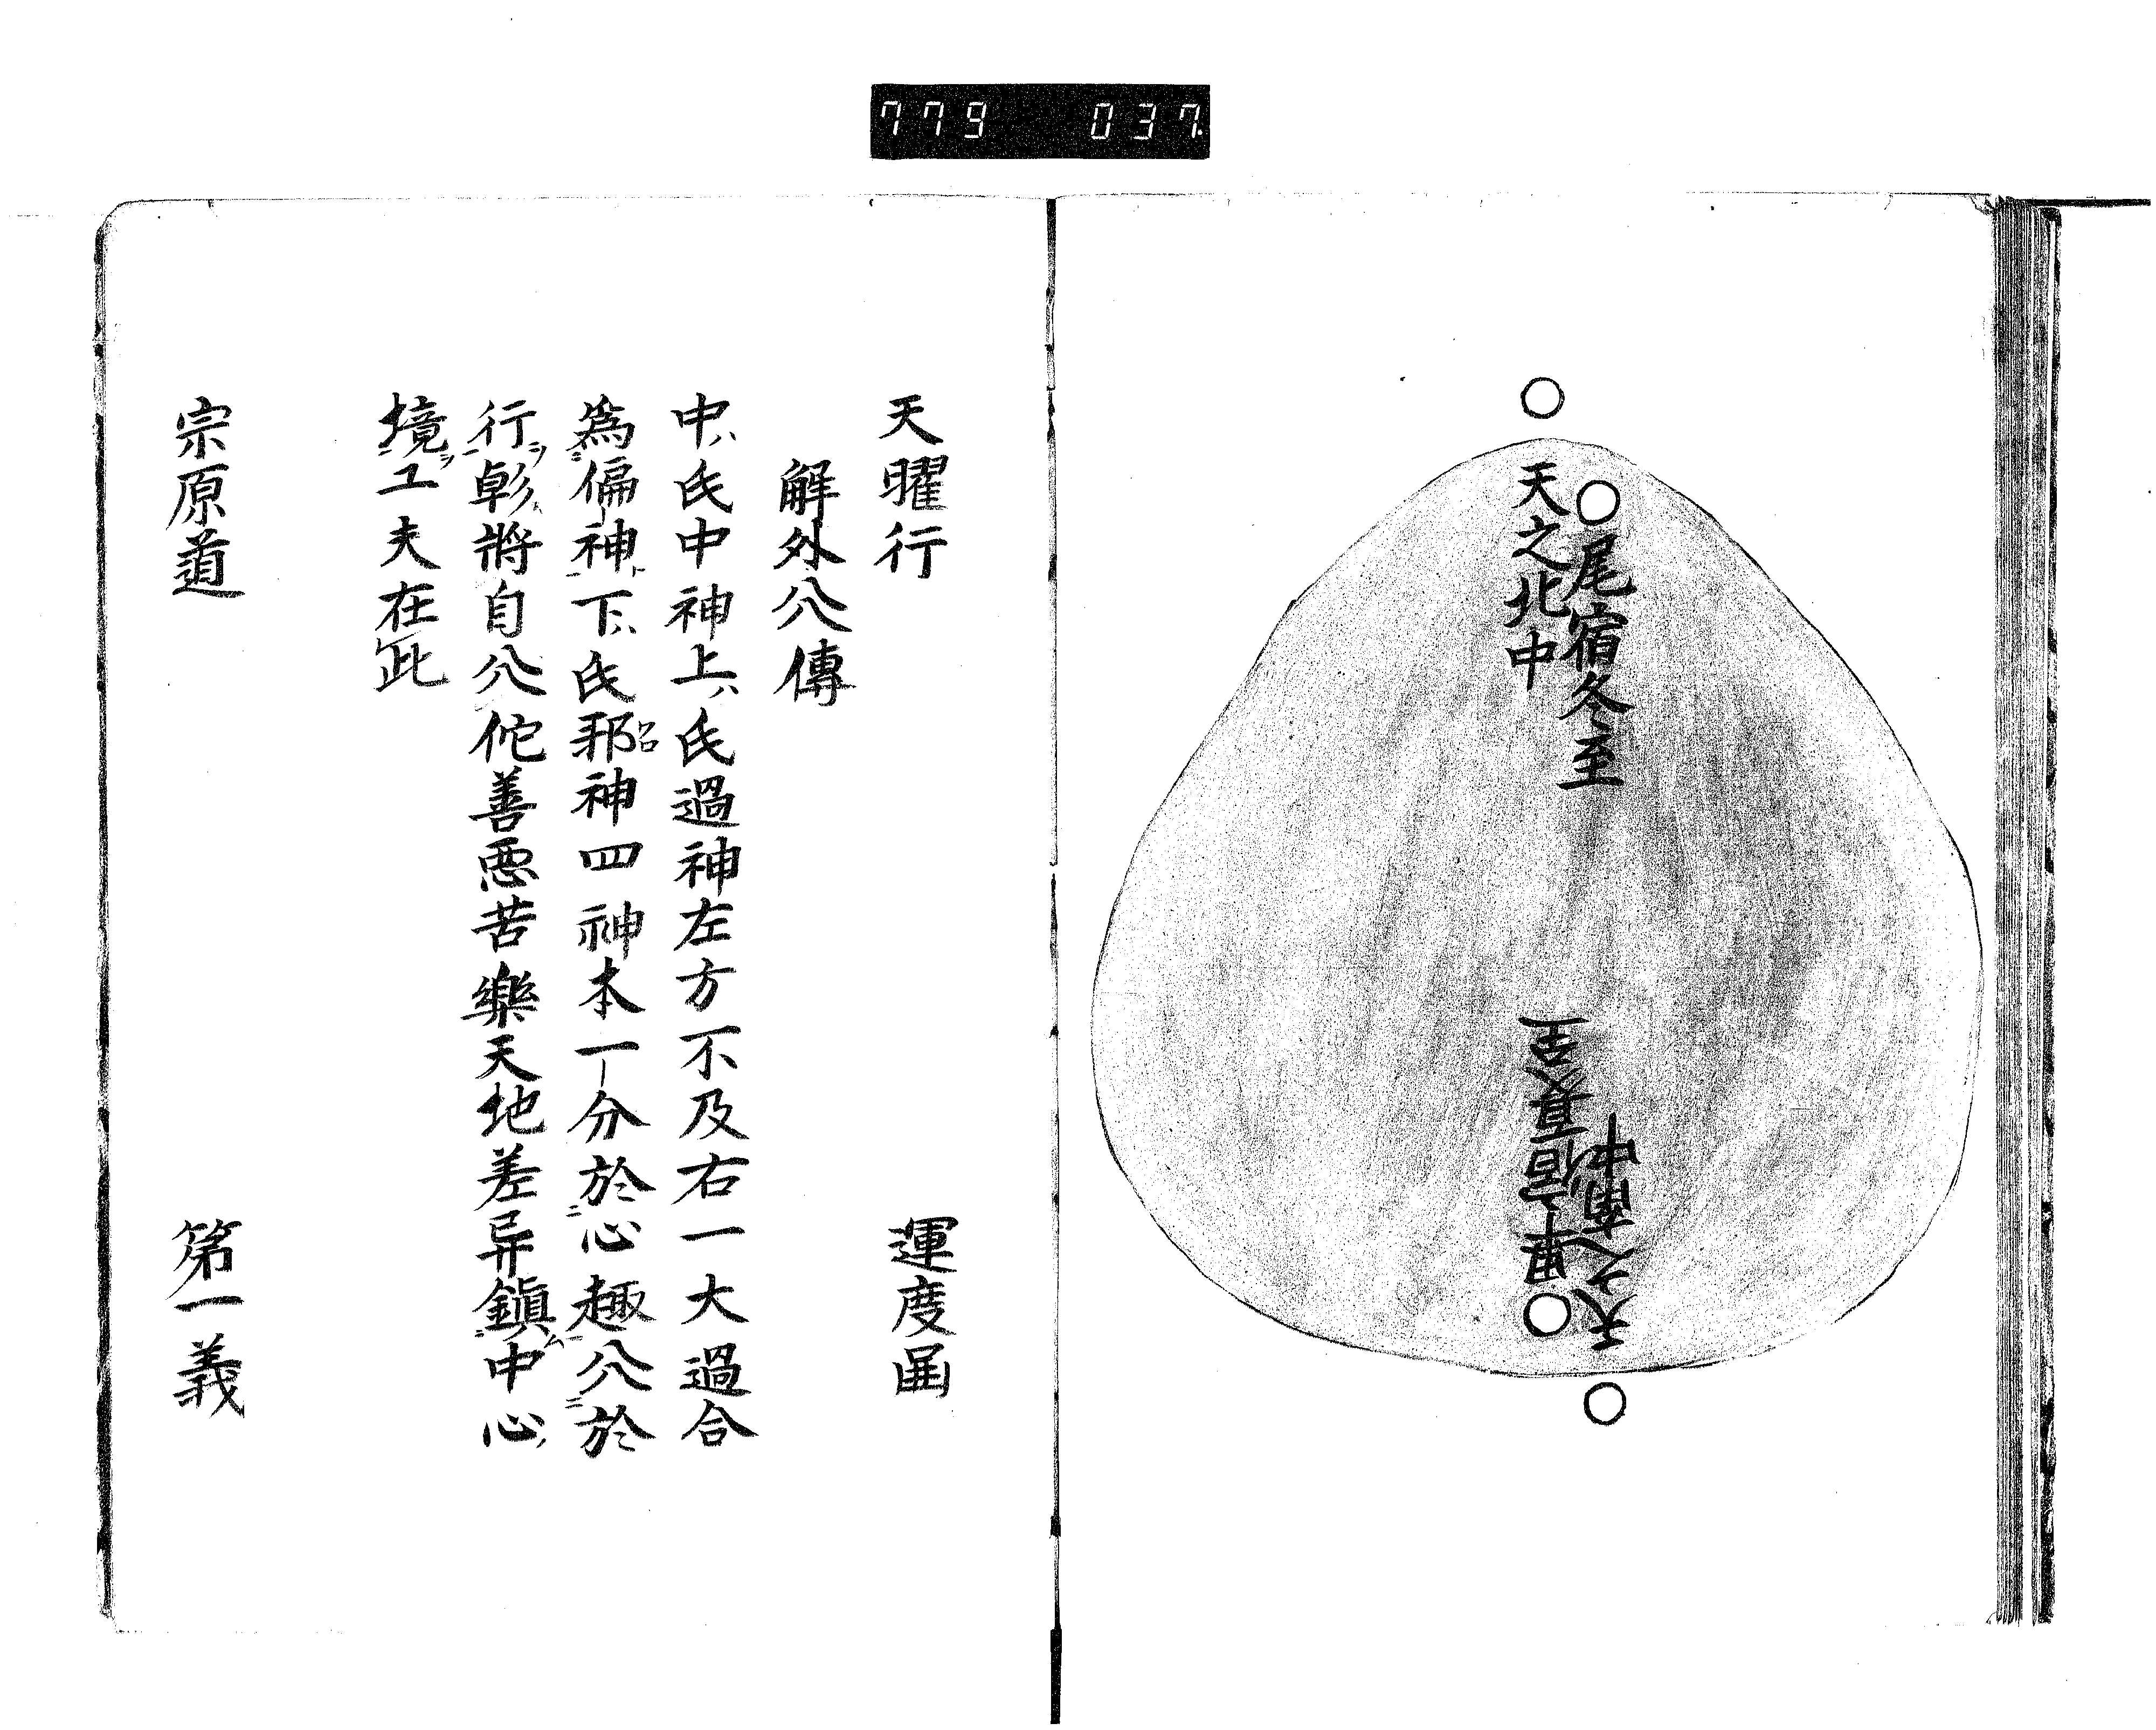 779 037
尾宿冬至
天之北中
天之南中
畢宿夏至
天曜行 運度冊
解外公傳
中氐中神上氐過神左方不及右一大過合
為偏神下氐邪神四神本一分於心趣公於
行彰將自公佗善悪苦樂天地差异鎭中心
境工夫在此
宗原道 第一義